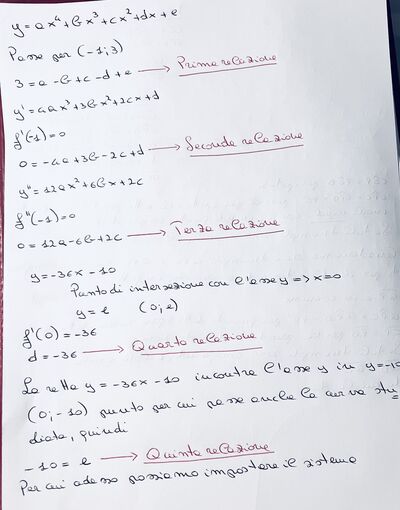 y=ax⁴+bx³+cx²+dx+e
Passa per (-1;3)
3=a-b+c-d+e → Prima relazione
y'=4ax³+3bx²+2cx+d
f'(-1)=0
0=-4a+3b-2c+d → Seconda relazione
y''=12ax²+6bx+2c
f''(-1)=0
0=12a-6b+2c → Terza relazione
y=-36x-10
Punto di intersezione con l'asse y => x=0
y=e (0;e)
f'(0)=-36
d=-36 → Quarta relazione
La retta y=-36x-10 incontra l'asse y in y=-10
(0;-10) punto per cui passa anche la curva stu
diata, quindi
-10=e → Quinta relazione
Per cui adesso possiamo impostare il sistema